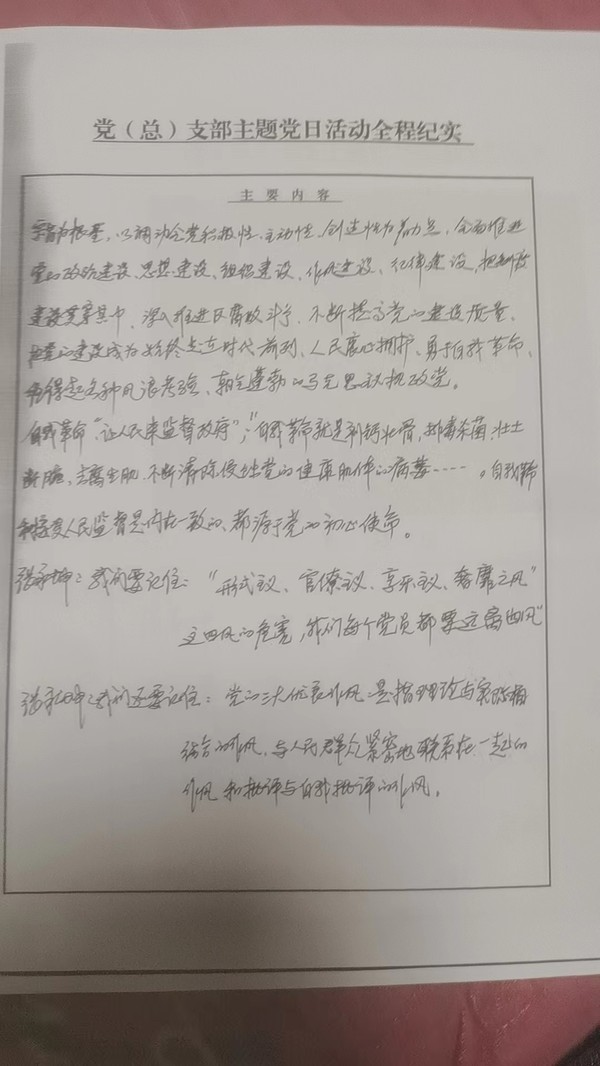 党（总）支部主题党日活动全程纪实
主要内容
为根基，以调动全党积极性、主动性、创造性为着力点，全面推进
党的政治建设、思想建设、组织建设、作风建设、纪律建设，把制度
建设贯穿其中，深入推进反腐败斗争，不断提高党的建设质量，
把党的建设成为始终走在时代前列、人民衷心拥护、勇于自我革命、
经得起各种风浪考验、朝气蓬勃的马克思主义执政党。
自我革命“让人民来监督政府”；“自我革命就是刮骨，排毒杀菌，壮士
断腕、去腐生肌，不断清除侵蚀党的健康肌体的病毒……。自我革命
和接受人民监督是内在一致的、都源于党的初心使命。
我们要记住：“形式主义、官僚主义、享乐主义、奢靡之风”
这四风的危害，我们每个党员都要远离四风”
我们还要记住：党的三大优良作风是指理论与实际相
结合的作风，与人民群众紧密地联系在一起的
作风和批评与自我批评的作风。